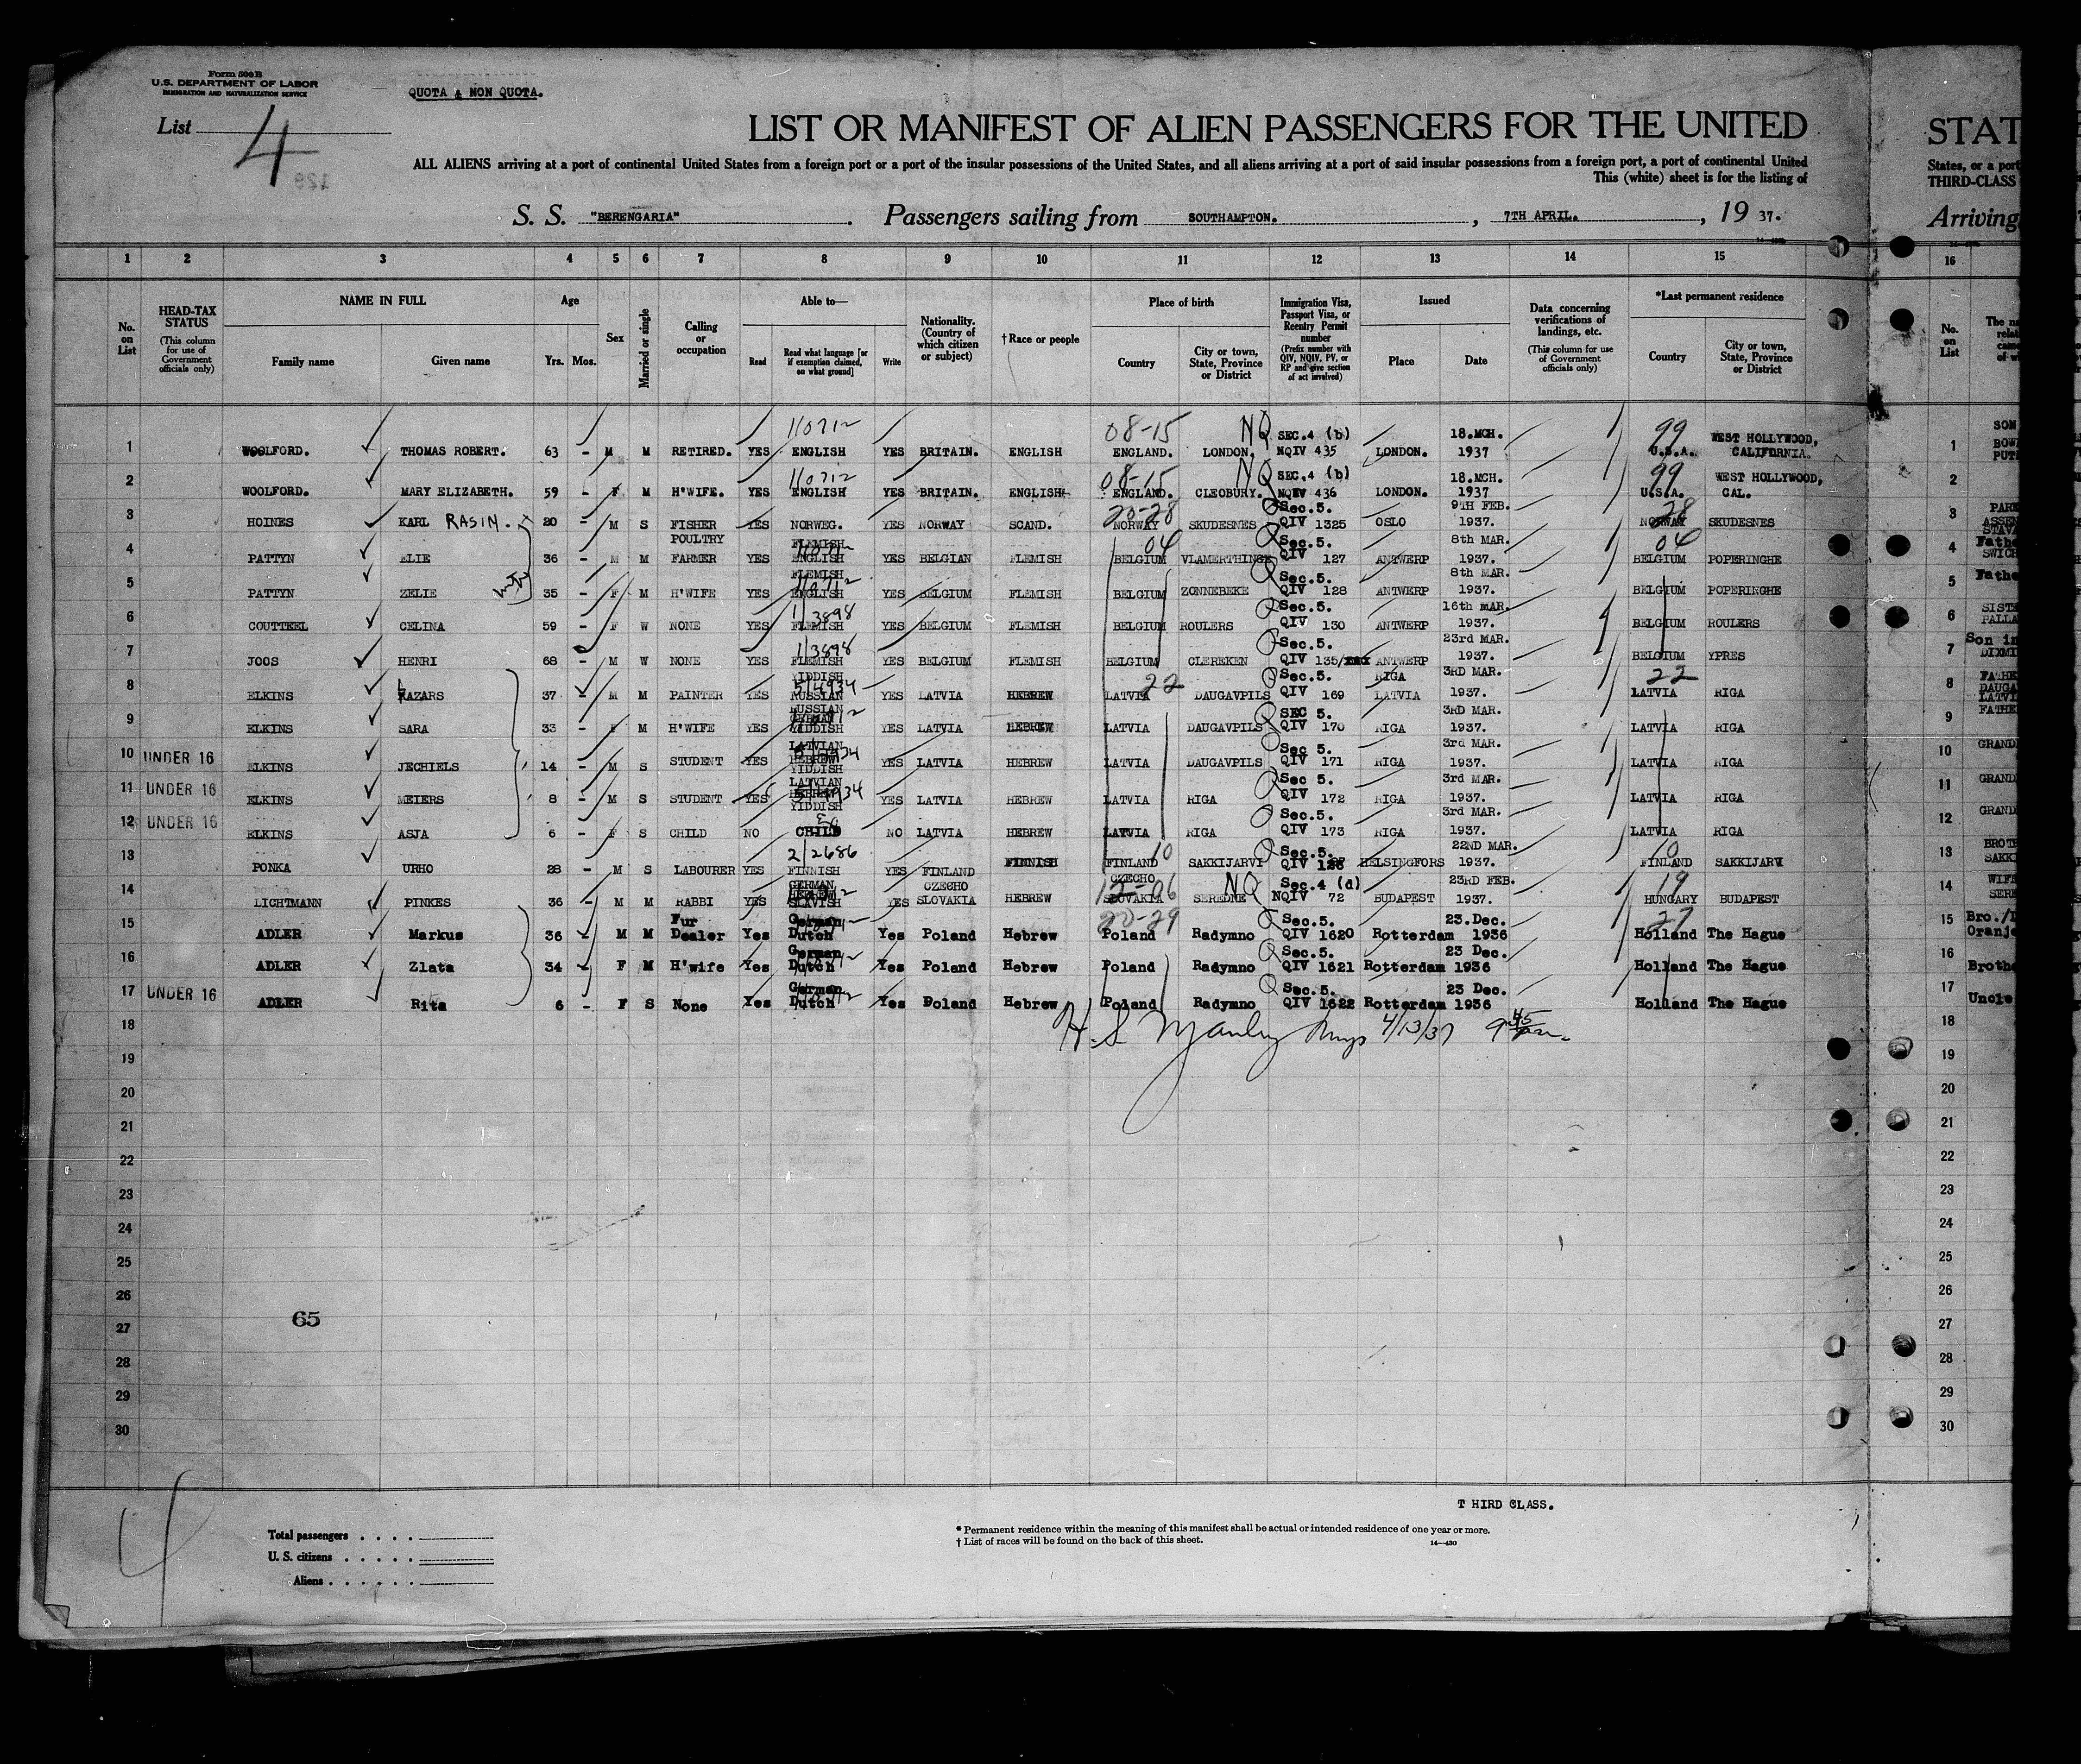 Form 500 B
U.S. DEPARTMENT OF LABOR
IMMIGRATION AND NATURALIZATION SERVICE
QUOTA & NON QUOTA.
List 4
129
LIST OR MANIFEST OF ALIEN PASSENGERS FOR THE UNITED
STAT
ALL ALIENS arriving at a port of continental United States from a foreign port or a port of the insular possessions of the United States, and all aliens arriving at a port of said insular possessions from a foreign port, a port of continental United
States, or a port
This (white) sheet is for the listing of
THIRD-CLASS
S. S. "BERENGARIA" Passengers sailing from SOUTHAMPTON. , 7TH APRIL. , 19 37.
Arriving
1 2 3 4 5 6 7 8 9 10 11 12 13 14 15 16
No. on List
HEAD-TAX STATUS (This column for use of Government officials only)
NAME IN FULL Family name Given name
Age Yrs. Mos.
Sex
Married or single
Calling or occupation
Able to— Read Read what language [or if exemption claimed, on what ground] Write
Nationality. (Country of which citizen or subject)
†Race or people
Place of birth Country City or town, State, Province or District
Immigration Visa, Passport Visa, or Reentry Permit number (Prefix number with QIV, NQIV, PV, or RP and give section of act involved)
Issued Place Date
Data concerning verifications of landings, etc. (This column for use of Government officials only)
*Last permanent residence Country City or town, State, Province or District
No. on List
1 WOOLFORD. THOMAS ROBERT. 63 - M M RETIRED. YES 110712 ENGLISH YES BRITAIN. ENGLISH 08-15 ENGLAND. LONDON. NQ SEC.4 (b) NQIV 435 LONDON. 18.MCH. 1937 99 U.S.A. WEST HOLLYWOOD, CALIFORNIA. 1 SON
2 WOOLFORD. MARY ELIZABETH. 59 - F M H'WIFE. YES 110712 ENGLISH YES BRITAIN. ENGLISH 08-15 ENGLAND. CLEOBURY. NQ SEC.4 (b) NQIV 436 LONDON. 18.MCH. 1937 99 U.S.A. WEST HOLLYWOOD, CAL. 2
3 HOINES KARL RASIM. 20 - M S FISHER YES NORWEG. YES NORWAY SCAND. 20-28 NORWAY SKUDESNES Sec.5. QIV 1325 OSLO 9TH FEB. 1937. 28 NORWAY SKUDESNES 3
4 PATTYN ELIE 36 - M M POULTRY FARMER YES FLEMISH ENGLISH YES BELGIAN FLEMISH 04 BELGIUM VLAMERTHINGE Sec.5. QIV 127 ANTWERP 8th MAR. 1937. 04 BELGIUM POPERINGHE 4
5 PATTYN ZELIE 35 - F M H'WIFE YES FLEMISH ENGLISH YES BELGIUM FLEMISH BELGIUM ZONNEBEKE Sec.5. QIV 128 ANTWERP 8th MAR. 1937. BELGIUM POPERINGHE 5
6 COUTTEEL CELINA 59 - F W NONE YES 1/3898 FLEMISH YES BELGIUM FLEMISH BELGIUM ROULERS Sec.5. QIV 130 ANTWERP 16th MAR. 1937. BELGIUM ROULERS 6
7 JOOS HENRI 68 - M W NONE YES 1/3898 FLEMISH YES BELGIUM FLEMISH BELGIUM CLERKEN Sec.5. QIV 135 ANTWERP 23rd MAR. 1937. BELGIUM YPRES 7 Son in
8 ELKINS LAZARS 37 - M M PAINTER YES YIDDISH RUSSIAN YES LATVIA HEBREW 22 LATVIA DAUGAVPILS Sec.5. QIV 169 RIGA LATVIA 3RD MAR. 1937. 22 LATVIA RIGA 8
9 ELKINS SARA 33 - F M H'WIFE YES RUSSIAN GERMAN YIDDISH YES LATVIA HEBREW LATVIA DAUGAVPILS SEC 5. QIV 170 RIGA 3RD MAR. 1937. LATVIA RIGA 9
10 UNDER 16 ELKINS JECHIELS 14 - M S STUDENT YES LATVIAN HEBREW YIDDISH YES LATVIA HEBREW LATVIA DAUGAVPILS Sec 5. QIV 171 RIGA 3rd MAR. 1937. LATVIA RIGA 10
11 UNDER 16 ELKINS MEIERS 8 - M S STUDENT YES LATVIAN HEBREW YIDDISH YES LATVIA HEBREW LATVIA RIGA Sec 5. QIV 172 RIGA 3rd MAR. 1937. LATVIA RIGA 11
12 UNDER 16 ELKINS ASJA 6 - F S CHILD NO CHILD NO LATVIA HEBREW LATVIA RIGA Sec.5. QIV 173 RIGA 3rd MAR. 1937. LATVIA RIGA 12
13 PONKA URHO 28 - M S LABOURER YES 2/2686 FINNISH YES FINLAND FINNISH 10 FINLAND SAKKIJARVI Sec.5. QIV HELSINGFORS 22ND MAR. 1937. 10 FINLAND SAKKIJARVI 13
14 LICHTMANN PINKES 36 - M M RABBI YES GERMAN HEBREW SLAVISH YES CZECHO SLOVAKIA HEBREW 12-06 CZECHO SLOVAKIA SEREDNE NQ Sec.4 (d) NQIV 72 BUDAPEST 23RD FEB. 1937. 19 HUNGARY BUDAPEST 14
15 ADLER Markus 36 - M M Fur Dealer Yes German Dutch Yes Poland Hebrew 20-29 Poland Radymno Sec.5. QIV 1620 Rotterdam 23.Dec. 1936 27 Holland The Hague 15
16 ADLER Zlata 34 - F M H'wife Yes German Dutch Yes Poland Hebrew Poland Radymno Sec.5. QIV 1621 Rotterdam 23 Dec. 1936 Holland The Hague 16
17 UNDER 16 ADLER Rita 6 - F S None Yes German Dutch Yes Poland Hebrew Poland Radymno Sec.5. QIV 1622 Rotterdam 23 Dec. 1936 Holland The Hague 17 Uncle
18 H. S. Manley 4/13/37 18
19 19
20 20
21 21
22 22
23 23
24 24
25 25
26 26
65
27 27
28 28
29 29
30 30
T HIRD CLASS.
Total passengers . . . .
U. S. citizens . . . . .
Aliens . . . . . .
* Permanent residence within the meaning of this manifest shall be actual or intended residence of one year or more.
† List of races will be found on the back of this sheet.
14—430